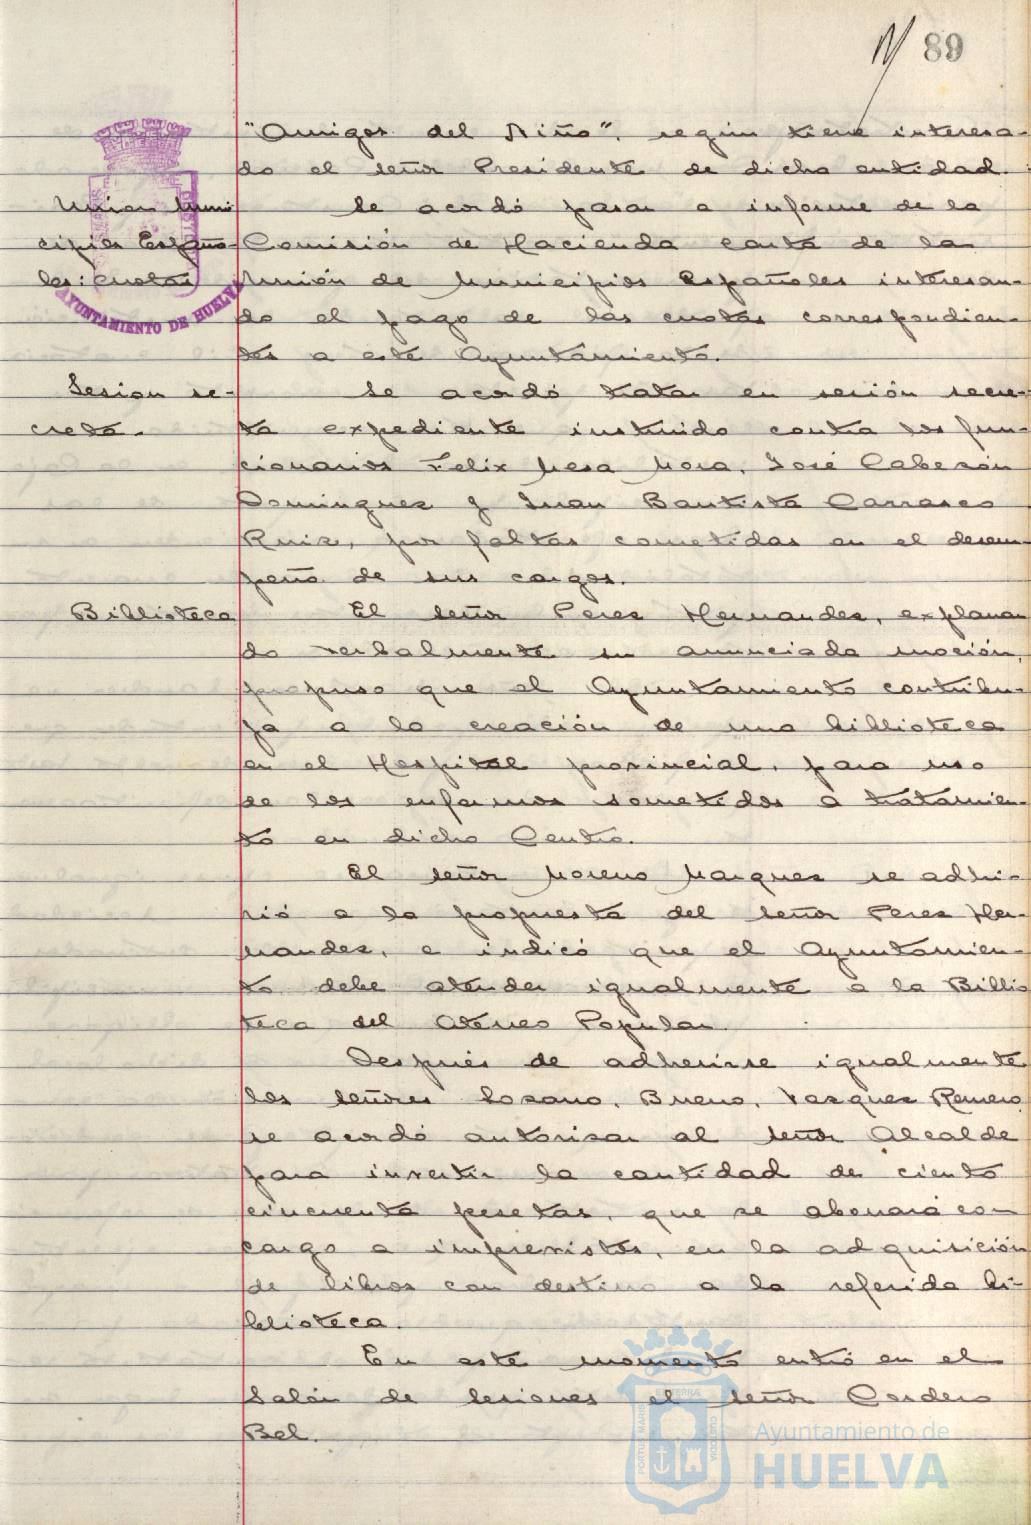 89
"Amigos del Niño", según tiene interesa-
do el señor Presidente de dicha entidad.
Union Muni
cipios Españo-
les: cuotas
Se acordó pasar a informe de la
Comisión de Hacienda carta de la
Unión de Municipios Españoles interesan-
do el pago de las cuotas correspondien-
tes a este Ayuntamiento.
Sesion se-
creta.
Se acordó tratar en sesión secre-
ta expediente instruido contra los fun-
cionarios Felix Mesa Mora, José Cabezón
Dominguez y Juan Bautista Carrasco
Ruiz, por faltas cometidas en el desem-
peño de sus cargos.
Biblioteca
El señor Perez Hernandez, explanan
do verbalmente su anunciada moción,
propuso que el Ayuntamiento contribu-
ya a la creación de una biblioteca
en el Hospital provincial, para uso
de los enfermos sometidos a tratamien-
to en dicho Centro.
El señor Moreno Marquez se adhi-
rió a la propuesta del señor Perez Her-
nandez, e indicó que el Ayuntamien-
to debe atender igualmente a la Biblio
teca del Ateneo Popular.
Después de adherirse igualmente
los señores Lozano, Bueno, Vazquez Romero,
se acordó autorizar al señor Alcalde
para invertir la cantidad de ciento
cincuenta pesetas, que se abonará con
cargo a imprevistos, en la adquisición
de libros con destino a la referida bi-
blioteca.
En este momento entró en el
Salón de sesiones el señor Cordero
Bel.
AYUNTAMIENTO DE HUELVA
Ayuntamiento de
HUELVA